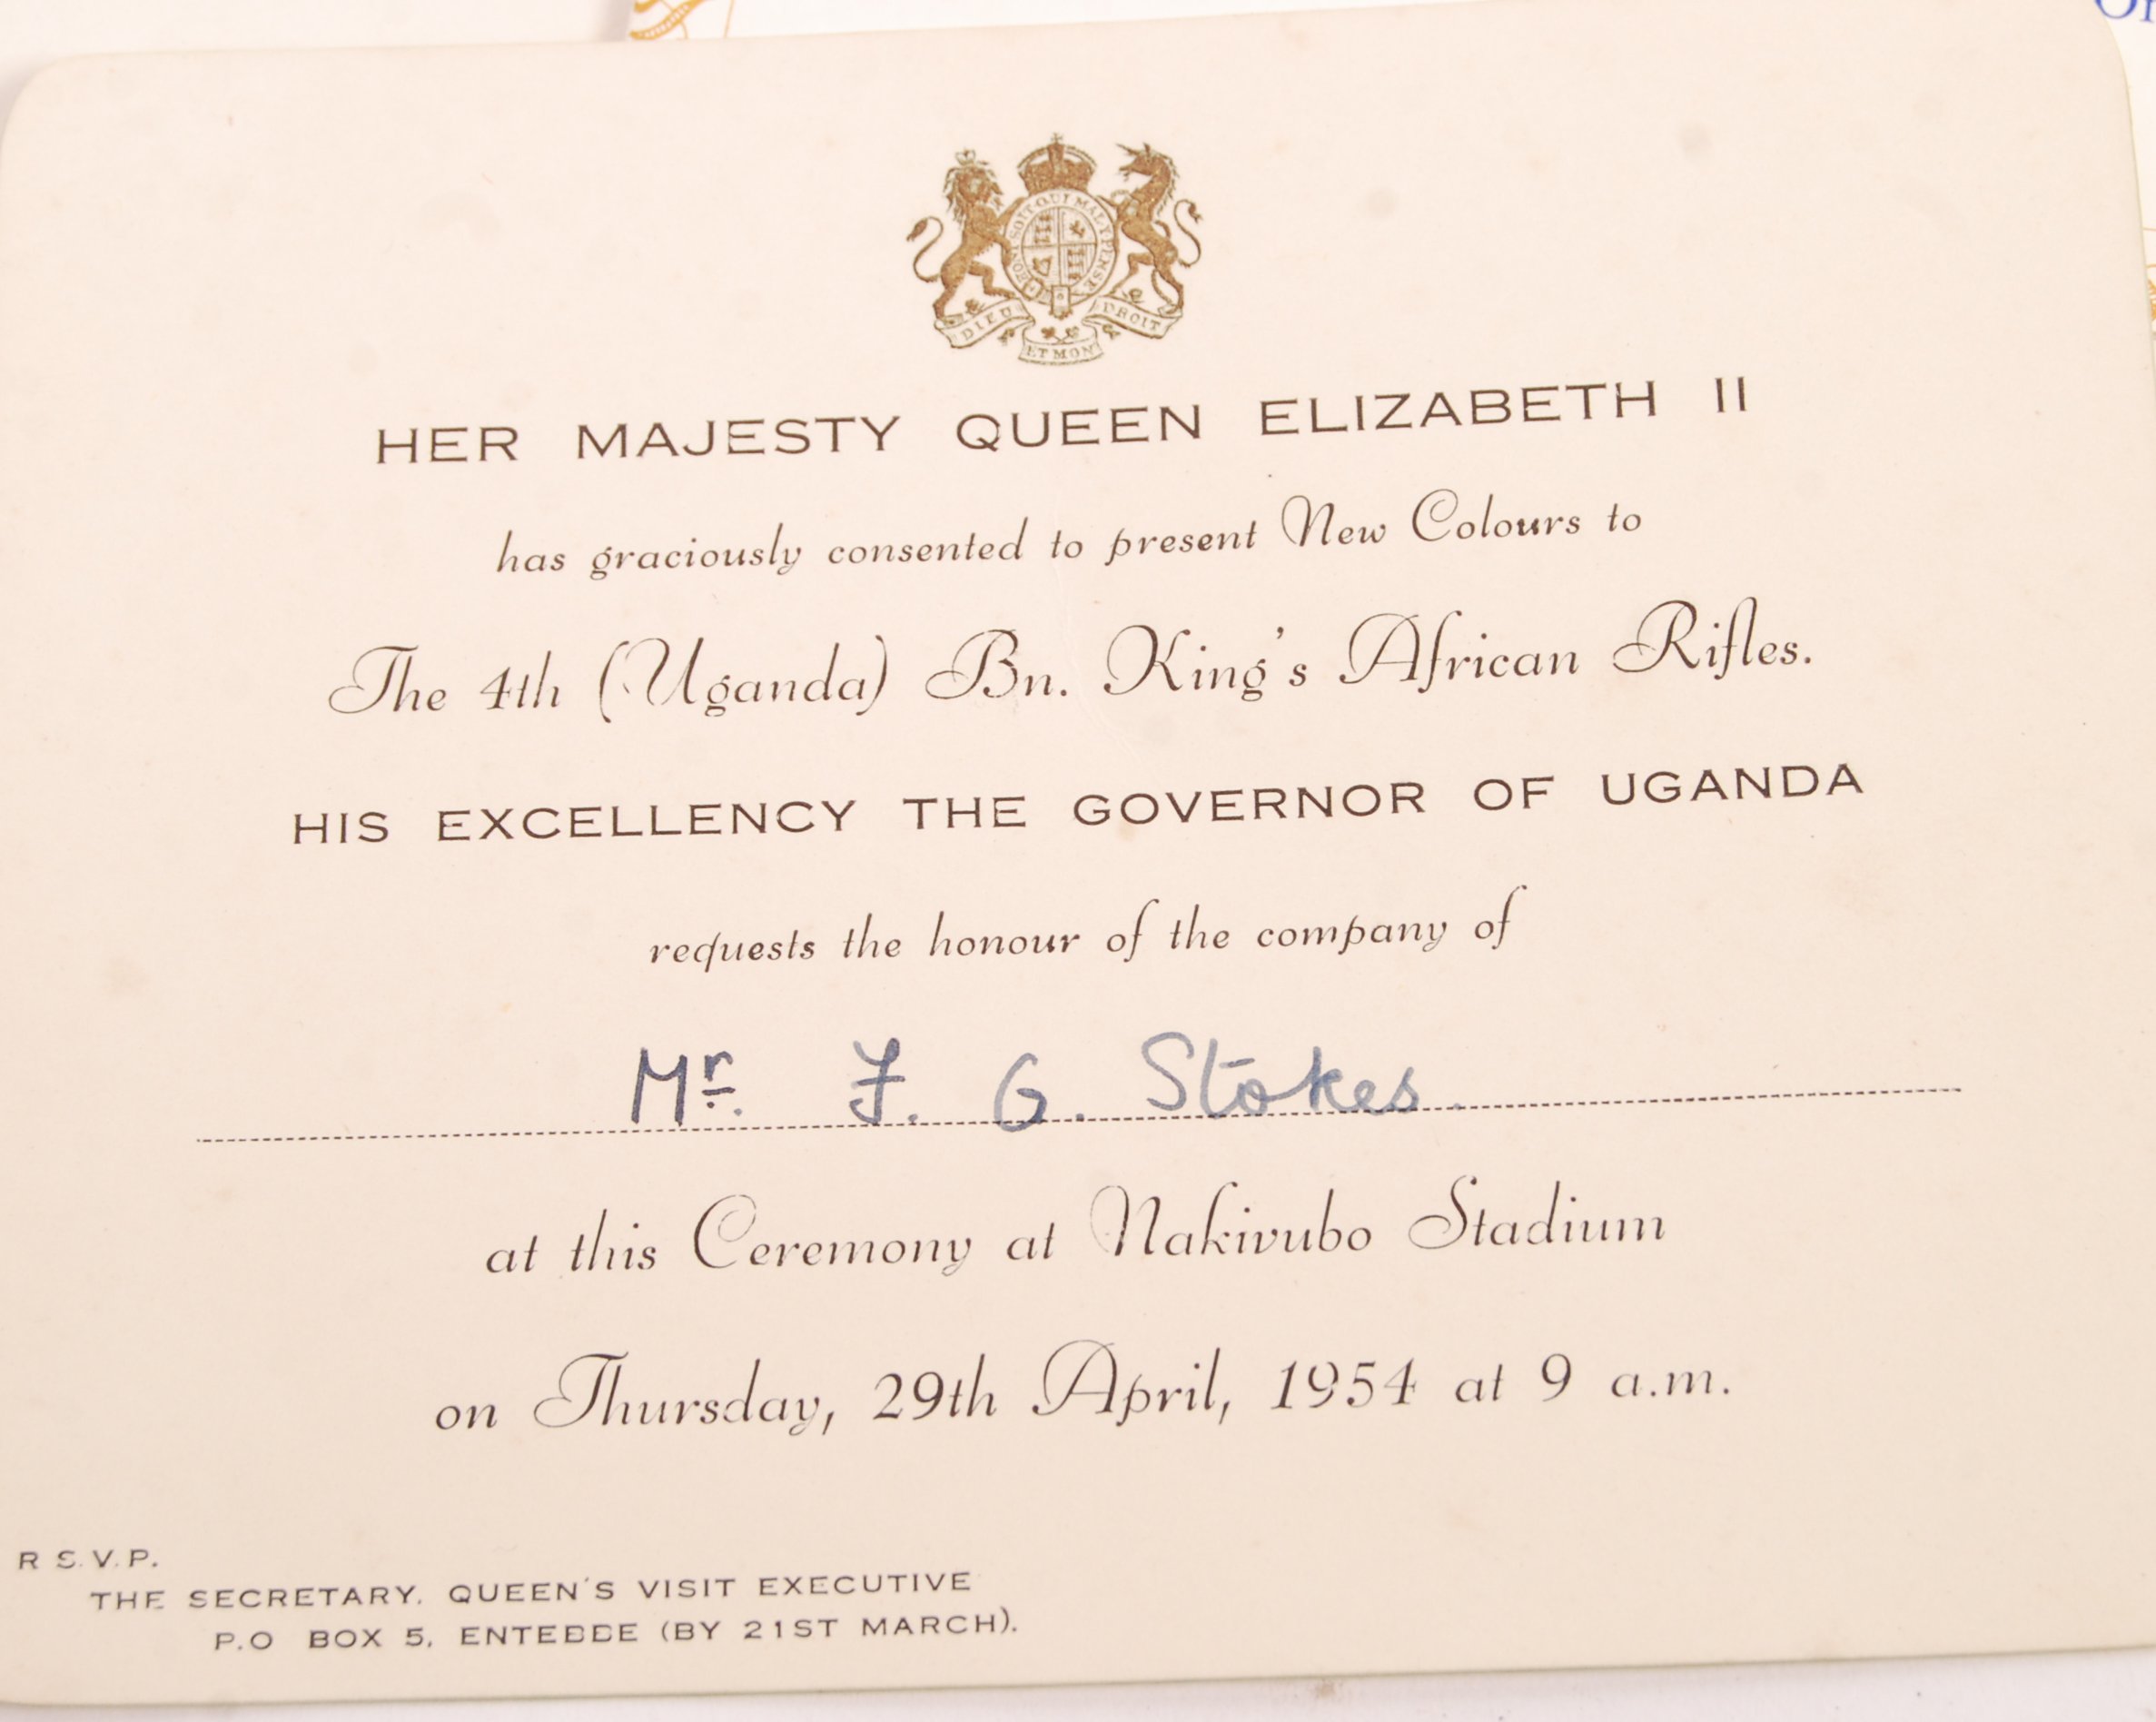 HONI SOIT QUI MAL Y PENSE
DIEU ET MON DROIT
HER MAJESTY QUEEN ELIZABETH II
has graciously consented to present New Colours to
The 4th (Uganda) Bn. King's African Rifles.
HIS EXCELLENCY THE GOVERNOR OF UGANDA
requests the honour of the company of
Mr. F. G. Stokes.
at this Ceremony at Nakivubo Stadium
on Thursday, 29th April, 1954 at 9 a.m.
R.S.V.P.
THE SECRETARY, QUEEN'S VISIT EXECUTIVE
P.O BOX 5, ENTEBBE (BY 21ST MARCH).